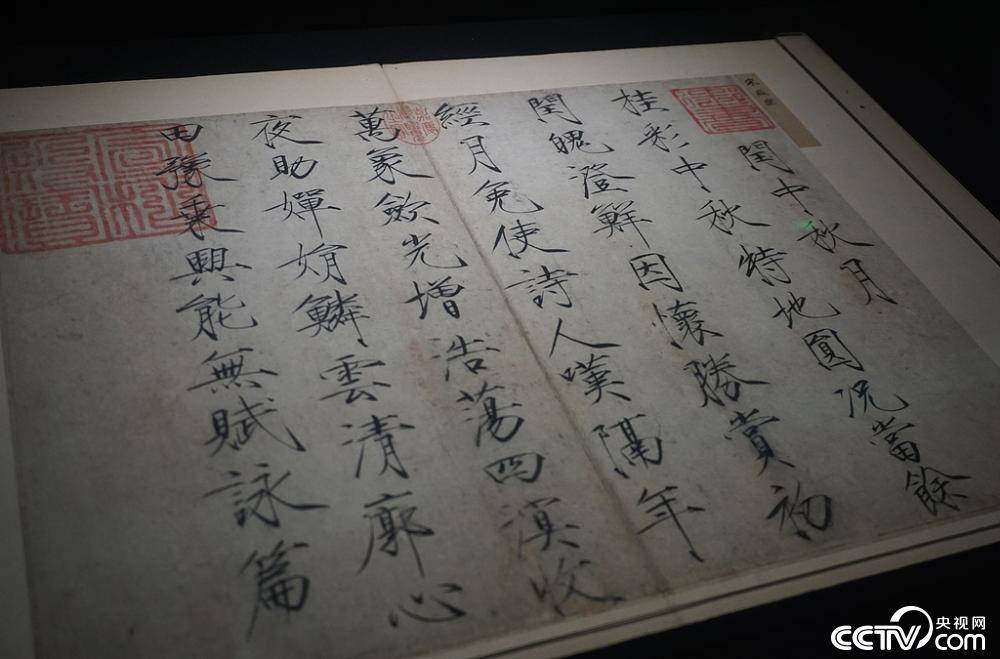 閏中秋月
桂彩中秋特地圓况當餘
閏魄澄鮮因懷勝賞初
經月免使詩人嘆隔年
萬象歛光增浩蕩四溟收
夜助嬋娟鱗雲清廓心
田豫乘興能無賦詠篇
央视网
CCTV.com